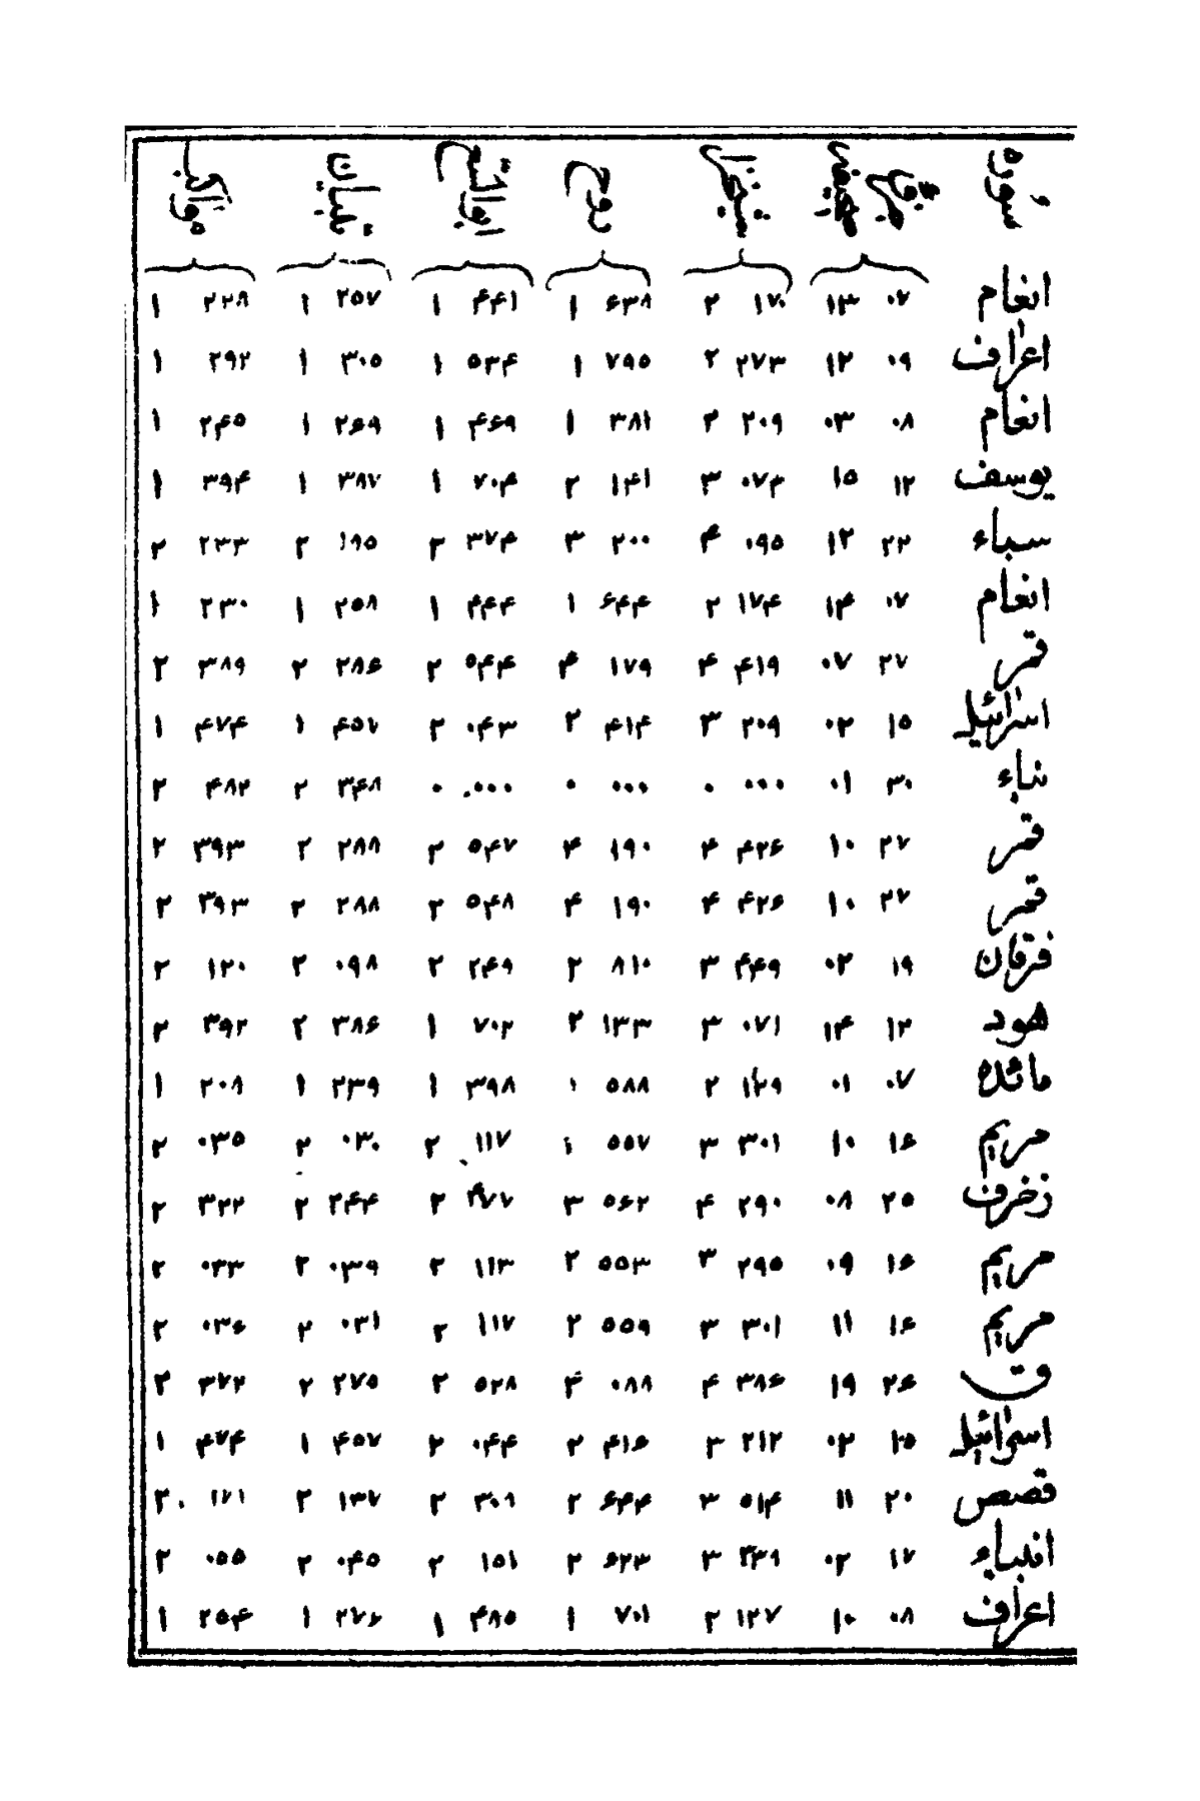 سوره جزء صفحه شیخ روح ابوالفتوح تبیان
انعام ۰۷ ۱۳ ۱۷۰ ۲ ۶۳۸ ۱ ۴۴۱ ۱ ۲۵۷ ۱ ۲۲۸ ۱
اعراف ۰۹ ۱۲ ۲۷۳ ۲ ۷۹۵ ۱ ۵۳۴ ۱ ۳۰۵ ۱ ۲۹۲ ۱
انعام ۰۸ ۰۳ ۲۰۹ ۲ ۳۸۱ ۱ ۴۶۹ ۱ ۲۶۹ ۱ ۲۴۵ ۱
یوسف ۱۲ ۱۵ ۰۷۳ ۳ ۱۴۱ ۲ ۷۰۴ ۱ ۳۸۷ ۱ ۳۹۴ ۱
سباء ۲۲ ۱۲ ۰۹۵ ۴ ۲۰۰ ۳ ۳۷۴ ۲ ۱۹۵ ۲ ۲۳۳ ۲
انعام ۰۷ ۱۴ ۱۷۴ ۲ ۶۴۴ ۱ ۴۴۴ ۱ ۲۵۸ ۱ ۲۳۰ ۱
قمر ۲۷ ۰۷ ۴۱۹ ۴ ۱۷۹ ۴ ۵۴۴ ۲ ۲۸۶ ۲ ۳۸۹ ۲
اسرائیل ۱۵ ۰۲ ۲۰۹ ۳ ۴۱۴ ۲ ۰۴۳ ۲ ۴۵۷ ۱ ۴۷۴ ۱
نباء ۳۰ ۰۱ ۰۰۰ ۰ ۰۰۰ ۰ ۰۰۰ ۰ ۳۴۸ ۲ ۴۸۲ ۲
قمر ۲۷ ۱۰ ۴۲۶ ۴ ۱۹۰ ۴ ۵۴۷ ۲ ۲۸۸ ۲ ۳۹۳ ۲
قمر ۲۷ ۱۰ ۴۲۶ ۴ ۱۹۰ ۴ ۵۴۸ ۲ ۲۸۸ ۲ ۳۹۳ ۲
فرقان ۱۹ ۰۲ ۴۴۹ ۳ ۸۱۰ ۲ ۲۴۹ ۲ ۰۹۸ ۲ ۱۲۰ ۲
هود ۱۲ ۱۴ ۰۷۱ ۳ ۱۳۳ ۲ ۷۰۲ ۱ ۳۸۶ ۲ ۳۹۲ ۲
مائده ۰۷ ۰۱ ۱۲۹ ۲ ۵۸۸ ۱ ۳۹۸ ۱ ۲۳۹ ۱ ۲۰۸ ۱
مریم ۱۶ ۱۰ ۳۰۱ ۳ ۵۵۷ ۱ ۱۱۷ ۲ ۰۳۰ ۲ ۰۳۵ ۲
زخرف ۲۵ ۰۸ ۲۹۰ ۴ ۵۶۲ ۳ ۴۷۷ ۲ ۲۴۴ ۲ ۳۲۲ ۲
مریم ۱۶ ۰۹ ۲۹۵ ۳ ۵۵۳ ۲ ۱۱۳ ۲ ۰۳۹ ۲ ۰۳۳ ۲
مریم ۱۶ ۱۱ ۳۰۱ ۳ ۵۵۹ ۲ ۱۱۷ ۲ ۰۳۱ ۲ ۰۳۶ ۲
ق ۲۶ ۱۹ ۳۸۶ ۴ ۰۸۸ ۴ ۵۲۸ ۲ ۲۷۵ ۲ ۳۷۲ ۲
اسرائیل ۱۵ ۰۲ ۲۱۲ ۳ ۴۱۶ ۲ ۰۴۴ ۲ ۴۵۷ ۱ ۴۷۴ ۱
قصص ۲۰ ۱۱ ۵۱۴ ۳ ۶۴۴ ۲ ۳۰۹ ۲ ۱۳۷ ۲ ۱۷۱ ۲
انبیاء ۱۷ ۰۲ ۳۳۹ ۳ ۶۲۳ ۲ ۱۵۱ ۲ ۰۴۵ ۲ ۰۵۵ ۲
اعراف ۰۸ ۱۰ ۱۲۷ ۲ ۷۰۱ ۱ ۴۸۵ ۱ ۲۷۶ ۱ ۲۵۴ ۱